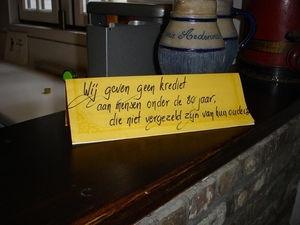 Wij geven geen krediet
aan mensen onder de 80 jaar,
die niet vergezeld zijn van hun ouders